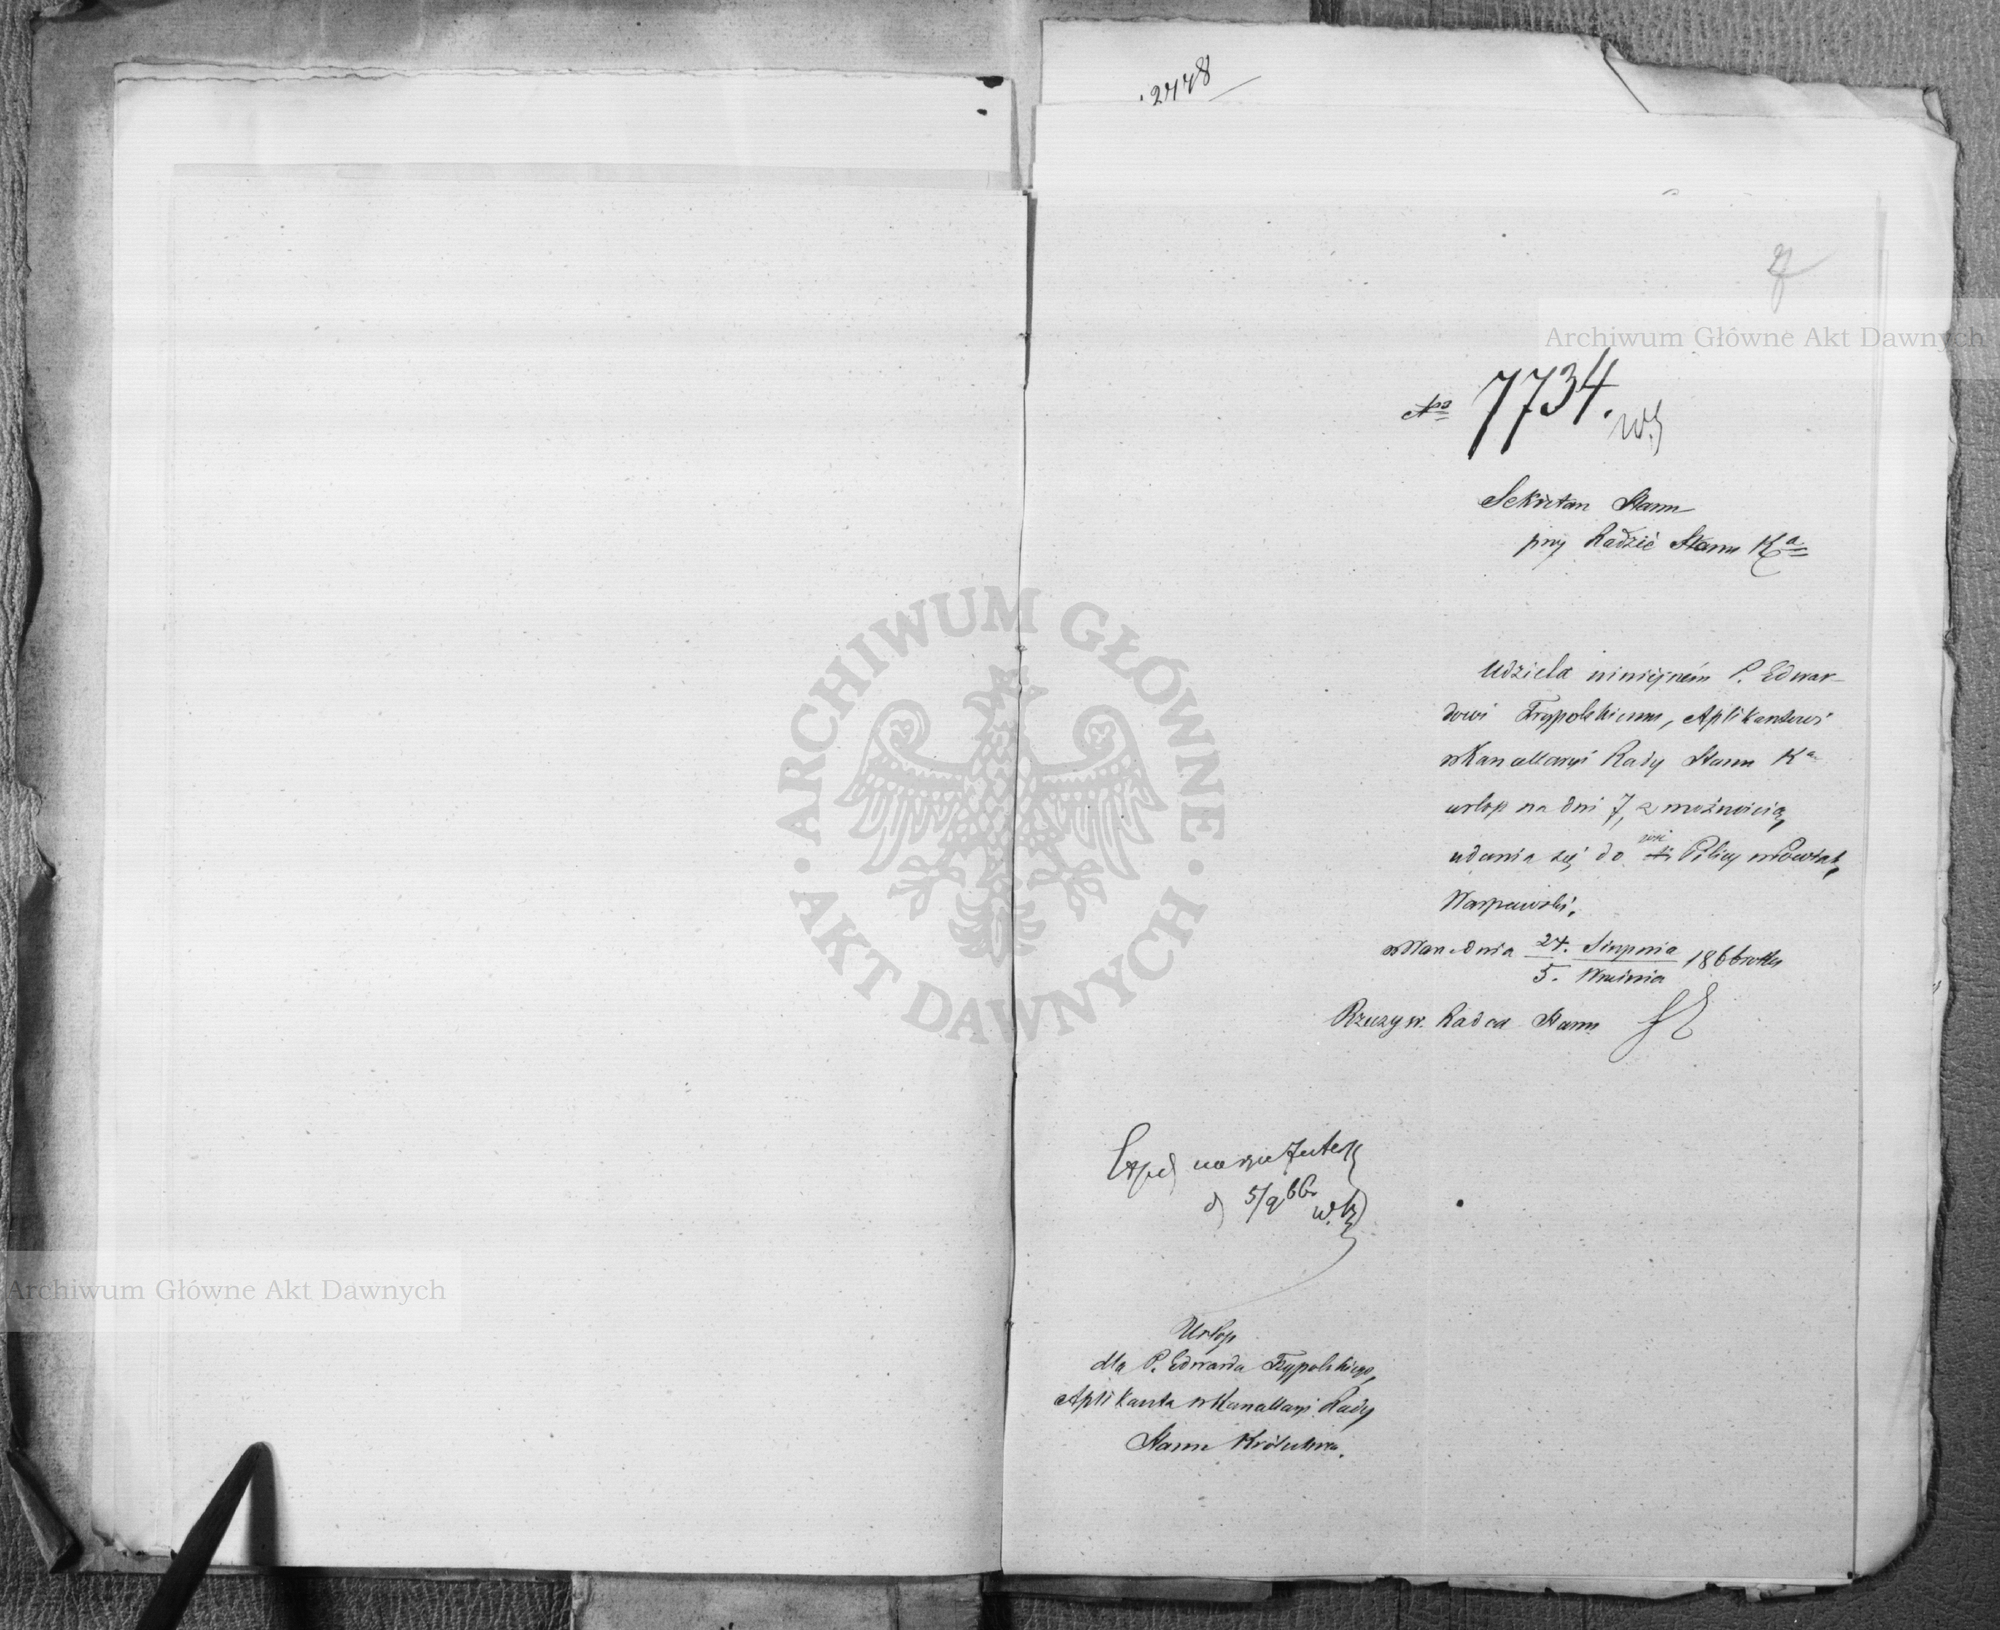 2778
7
Archiwum Główne Akt Dawnych
No 7734.
Sekretarz Stanu
przy Radzie Stanu Ka
Udziela niniejszém P. Edwar-
dowi Trypolskiemu, Aplikantowi
w Kancellaryi Rady Stanu Ka
urlop na dni 7, z możnością
udania się do wsi Pilicy w Powiat
Warszawski.
w War. dnia 24. Sierpnia / 5. Września 1866 roku
Rzeczyw. Radca Stanu
ARCHIWUM GŁÓWNE
· AKT DAWNYCH ·
d 5/9 66
Archiwum Główne Akt Dawnych
Urlop
dla P. Edwarda Trypolskiego,
Aplikanta w Kancellaryi Rady
Stanu Królestwa.